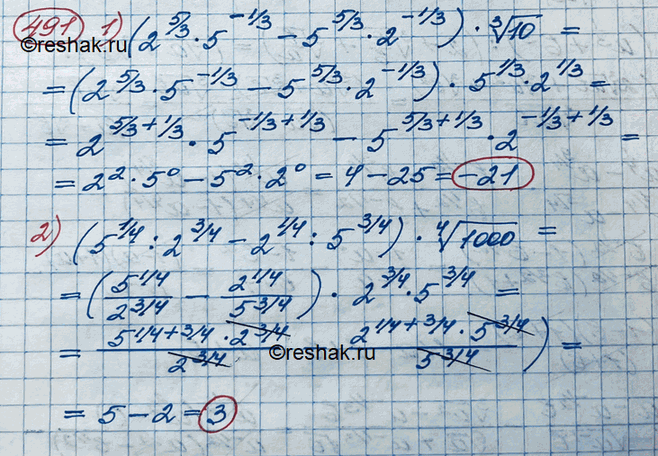 491 1) (2^{5/3} · 5^{-1/3} − 5^{5/3} · 2^{-1/3}) · ∛10 =
©reshak.ru
= (2^{5/3} · 5^{-1/3} − 5^{5/3} · 2^{-1/3}) · 5^{1/3} · 2^{1/3} =
= 2^{5/3+1/3} · 5^{-1/3+1/3} − 5^{5/3+1/3} · 2^{-1/3+1/3} =
= 2² · 5⁰ − 5² · 2⁰ = 4 − 25 = −21
2) (5^{1/4} : 2^{3/4} − 2^{1/4} : 5^{3/4}) · ∜1000 =
= (5^{1/4}/2^{3/4} − 2^{1/4}/5^{3/4}) · 2^{3/4} · 5^{3/4} =
= 5^{1/4+3/4} · 2^{3/4}/2^{3/4} 2^{1/4+3/4} · 5^{3/4}/5^{3/4}) =
©reshak.ru
= 5 − 2 = 3